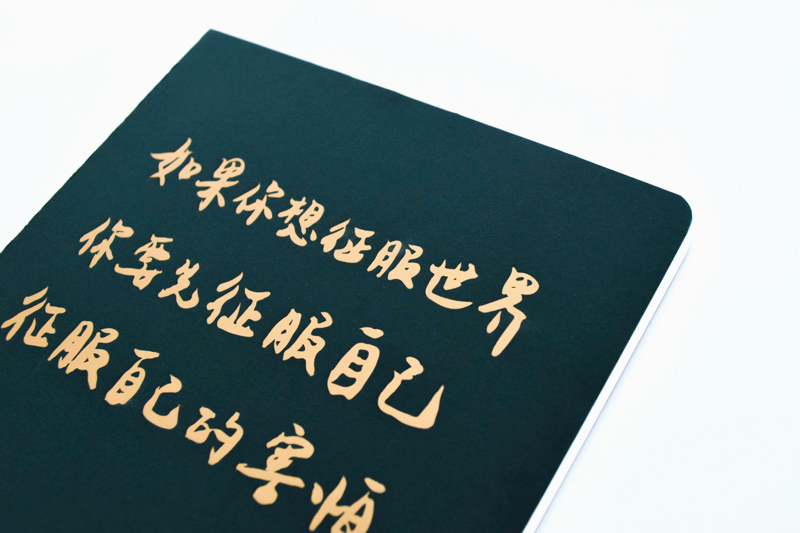 如果你想征服世界
你要先征服自己
征服自己的害怕